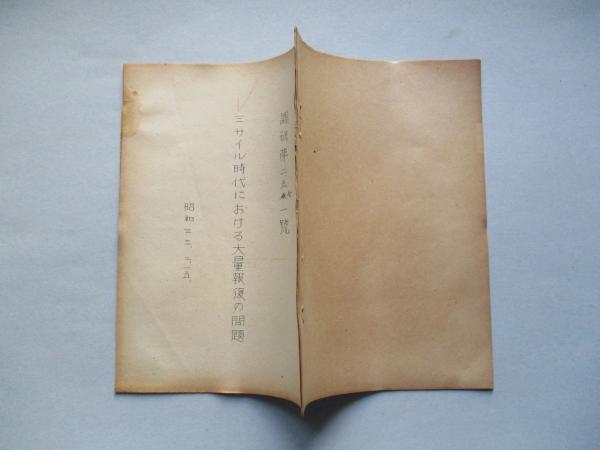 調研第二五 一號
ミサイル時代における大量報復の問題
昭和三三、二、一五、